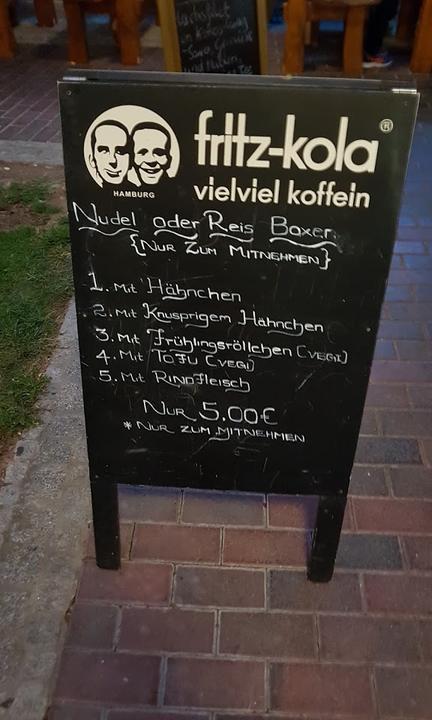 fritz-kola®
HAMBURG
vielviel koffein
Nudel oder Reis Boxer
{Nur Zum Mitnehmen}
1. Mit Hähnchen
2. Mit Knusprigem Hähnchen
3. Mit Frühlingsröllchen (vegi)
4. Mit Tofu (vegi)
5. Mit Rindfleisch
Nur 5.00€
* Nur zum Mitnehmen